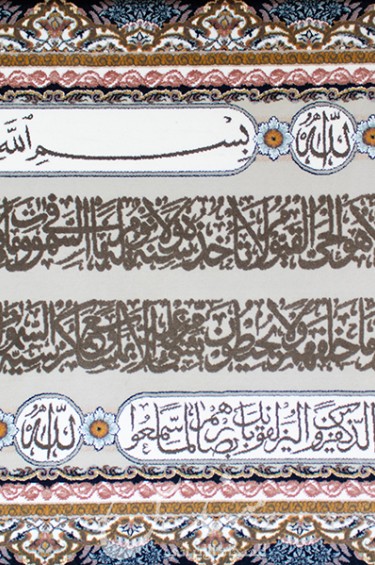 الله بِسْمِ ٱللَّهِ
هو الحي القيوم لا تأخذه سنة ولا نوم له ما في السموات وما
خلفهم ولا يحيطون بشيء من علمه إلا بما شاء وسع كرسيه
الذين كفروا ليزلقونك بأبصارهم لما سمعوا الله